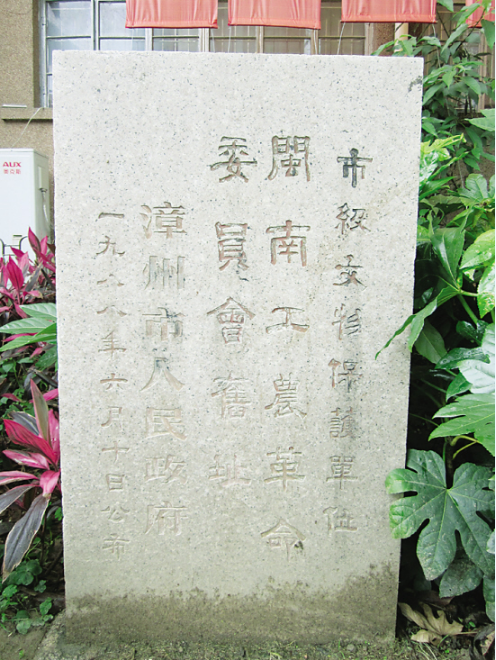 市級文物保護單位
閩南工農革命
委員會舊址
漳州市人民政府
一九八八年六月十日公布
AUX